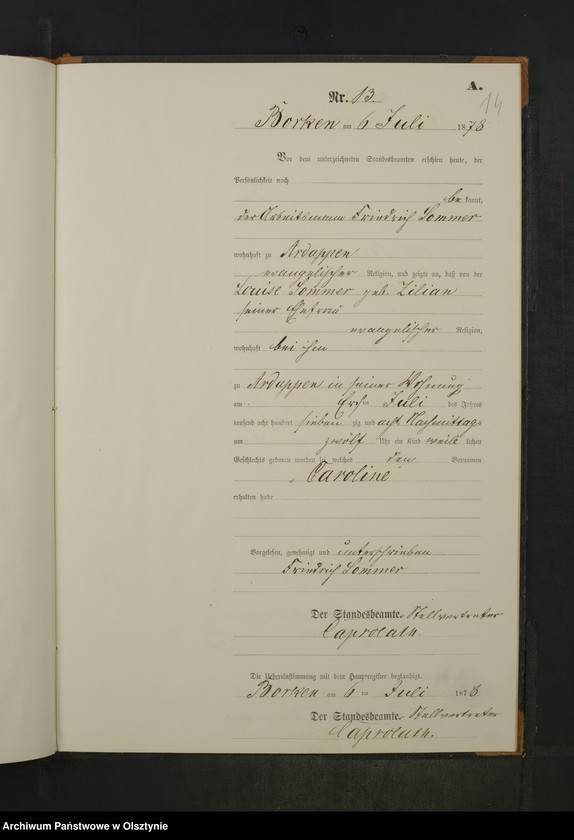 A.
14
Nr. 13.
Borken am 6 Juli 1878
Vor dem unterzeichneten Standesbeamten erschien heute, der
Persönlichkeit nach
be kannt,
der Arbeitsmann Friedrich Sommer
wohnhaft zu Ardappen
evangelischer Religion, und zeigte an, daß von der
Louise Sommer geb. Zilian
seiner Ehefrau
evangelischer Religion,
wohnhaft bei ihm
zu Ardappen in seiner Wohnung
am Juli des Jahres
tausend acht hundert sieben zig und acht Nachmittags
um zwölf Uhr ein Kind weib lichen
Geschlechts geboren worden sei, welches den Vornamen
„Caroline“
erhalten habe
Vorgelesen, genehmigt und unterschrieben
Friedrich Sommer
Der Standesbeamte. Stellvertreter
Caprolath.
Die Uebereinstimmung mit dem Hauptregister beglaubigt.
Borken am 6 ten Juli 1878
Der Standesbeamte. Stellvertreter
Caprolath.
Archiwum Państwowe w Olsztynie